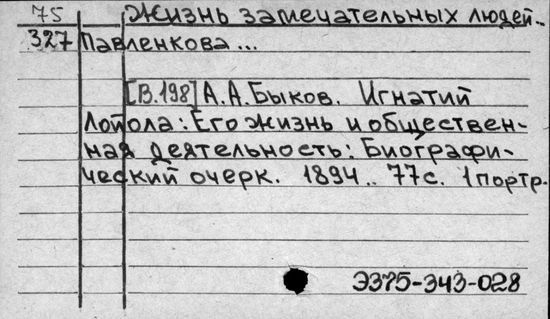 75 Жизнь замечательных людей...
327 Павленкова...
[В.198] А.А.Быков. Игнатий
Лойола: Его жизнь и обществен-
ная деятельность: Биографи-
ческий очерк. 1894.. 77с. 1портр.
Э375-343-028